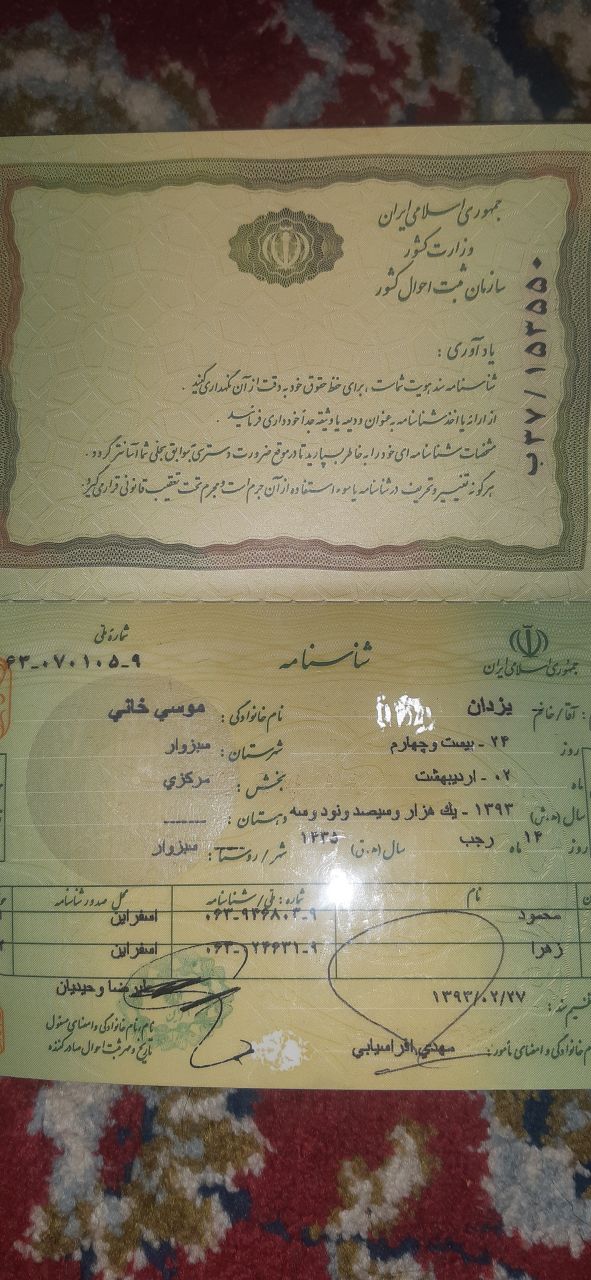 جمهوری اسلامی ایران
وزارت کشور
سازمان ثبت احوال کشور
ب۳۷/۱۵۳۵۵۰
یادآوری :
شناسنامه سند هویت شماست ، برای حفظ حقوق خود به دقت از آن نگهداری کنید .
از ارائه یا اخذ شناسنامه به عنوان ودیعه یا وثیقه جداً خودداری فرمائید .
مشخصات شناسنامه ای خود را به خاطر بسپارید تا در موقع ضرورت دسترسی به سوابق سجلی شما آسانتر گردد .
هرگونه تغییر و تحریف در شناسنامه یا سوء استفاده از آن جرم است و مجرم تحت تعقیب قانونی قرار می گیرد .
جمهوری اسلامی ایران
شناسنامه
شماره ملی
۶۳-۰۷۰۱۰۵-۹
: آقا/خانم یزدان نام خانوادگی : موسي خاني
روز ۲۴ - بیست وچهارم شهرستان : سبزوار
ماه ۰۲ - اردیبهشت بخش : مرکزي
سال (ه.ش) ۱۳۹۳ - یك هزار وسیصد ونود وسه دهستان : -----
روز ۱۴ ماه رجب سال (ه.ق) ۱۴۳۵ شهر / روستا : سبزوار
نام شماره : ملی/شناسنامه محل صدور شناسنامه
محمود ۰۶۳-۹۴۶۸۰۳-۹ اسفراین
زهرا اسفراین
۱۳۹۳/۰۲/۲۷ علیرضا وحیدیان
نام، نام خانوادگی و امضای مسئول
نام خانوادگی و امضای مأمور : مهدي افراسیابي تاریخ و مهر ثبت احوال صادرکننده